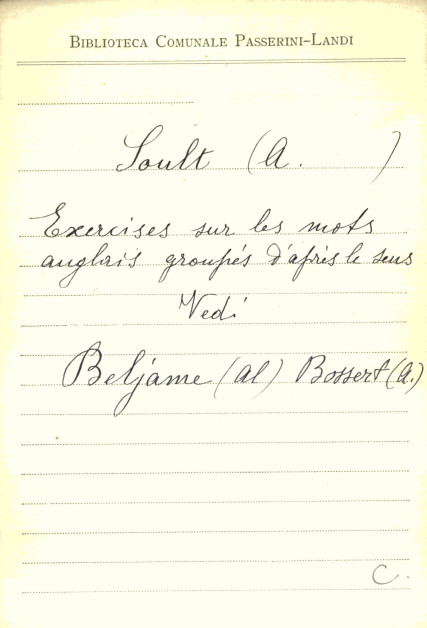 BIBLIOTECA COMUNALE PASSERINI-LANDI
Soult (A. )
Exercises sur les mots
anglais groupés d'après le sens
Vedi
Beljame (Al) Bossert (A.)
C.